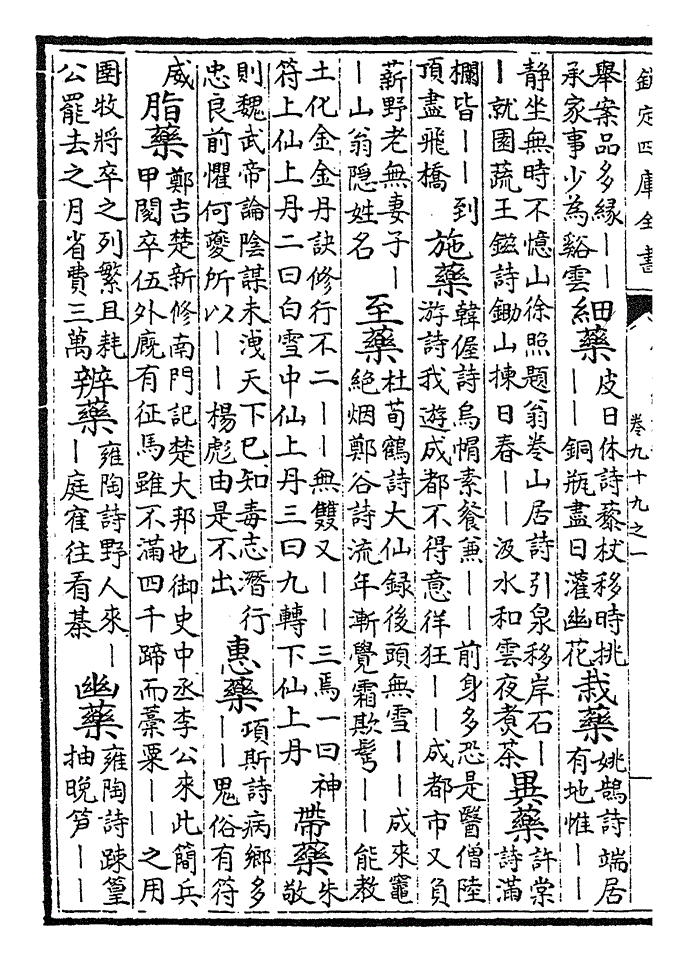 欽定四庫全書
卷九十九之一
舉案品多緣丨丨
承家事少為谿雲
細藥
皮日休詩藜杖移時挑
丨丨銅瓶盡日灌幽花
栽藥
姚鵠詩端居
有地惟丨丨
静坐無時不憶山徐照題翁卷山居詩引泉移岸石丨
丨就園蔬王鎡詩鋤山揀日春丨丨汲水和雲夜煑茶
異藥
許棠
詩滿
欄皆丨丨到
頂盡飛橋
施藥
韓偓詩烏帽素餐兼丨丨前身多恐是醫僧陸
游詩我遊成都不得意徉狂丨丨成都市又負
薪野老無妻子丨
丨山翁隠姓名
至藥
杜荀鶴詩大仙録後頭無雪丨丨成來竈
絶烟鄭谷詩流年漸覺霜欺鬢丨丨能教
土化金金丹訣修行不二丨丨無雙又丨丨三焉一曰神
符上仙上丹二曰白雪中仙上丹三曰九轉下仙上丹
帶藥
朱
敬
則魏武帝論陰謀未洩天下已知毒志潛行
忠良前懼何夔所以丨丨楊彪由是不出
惠藥
項斯詩病鄉多
丨丨鬼俗有符
威
脂藥
鄭吉楚新修南門記楚大邦也御史中丞李公來此簡兵
甲閲卒伍外廐有征馬雖不滿四千蹄而藁粟丨丨之用
圉牧將卒之列繁且耗
公罷去之月省費三萬
辨藥
雍陶詩野人來丨
丨庭隺往看棊
幽藥
雍陶詩踈篁
抽晚笋丨丨